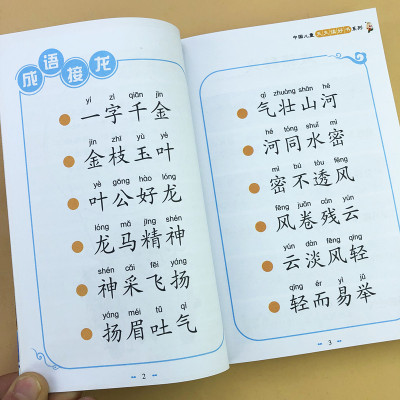 成语接龙
yí zì qiān jīn
一字千金
jīn zhī yù yè
金枝玉叶
yè gōng hào lóng
叶公好龙
lóng mǎ jīng shén
龙马精神
shén cǎi fēi yáng
神采飞扬
yáng méi tǔ qì
扬眉吐气
2
中国儿童
系列
qì zhuàng shān hé
气壮山河
hé tóng shuǐ mì
河同水密
mì bú tòu fēng
密不透风
fēng juǎn cán yún
风卷残云
yún dàn fēng qīng
云淡风轻
qīng ér yì jǔ
轻而易举
3